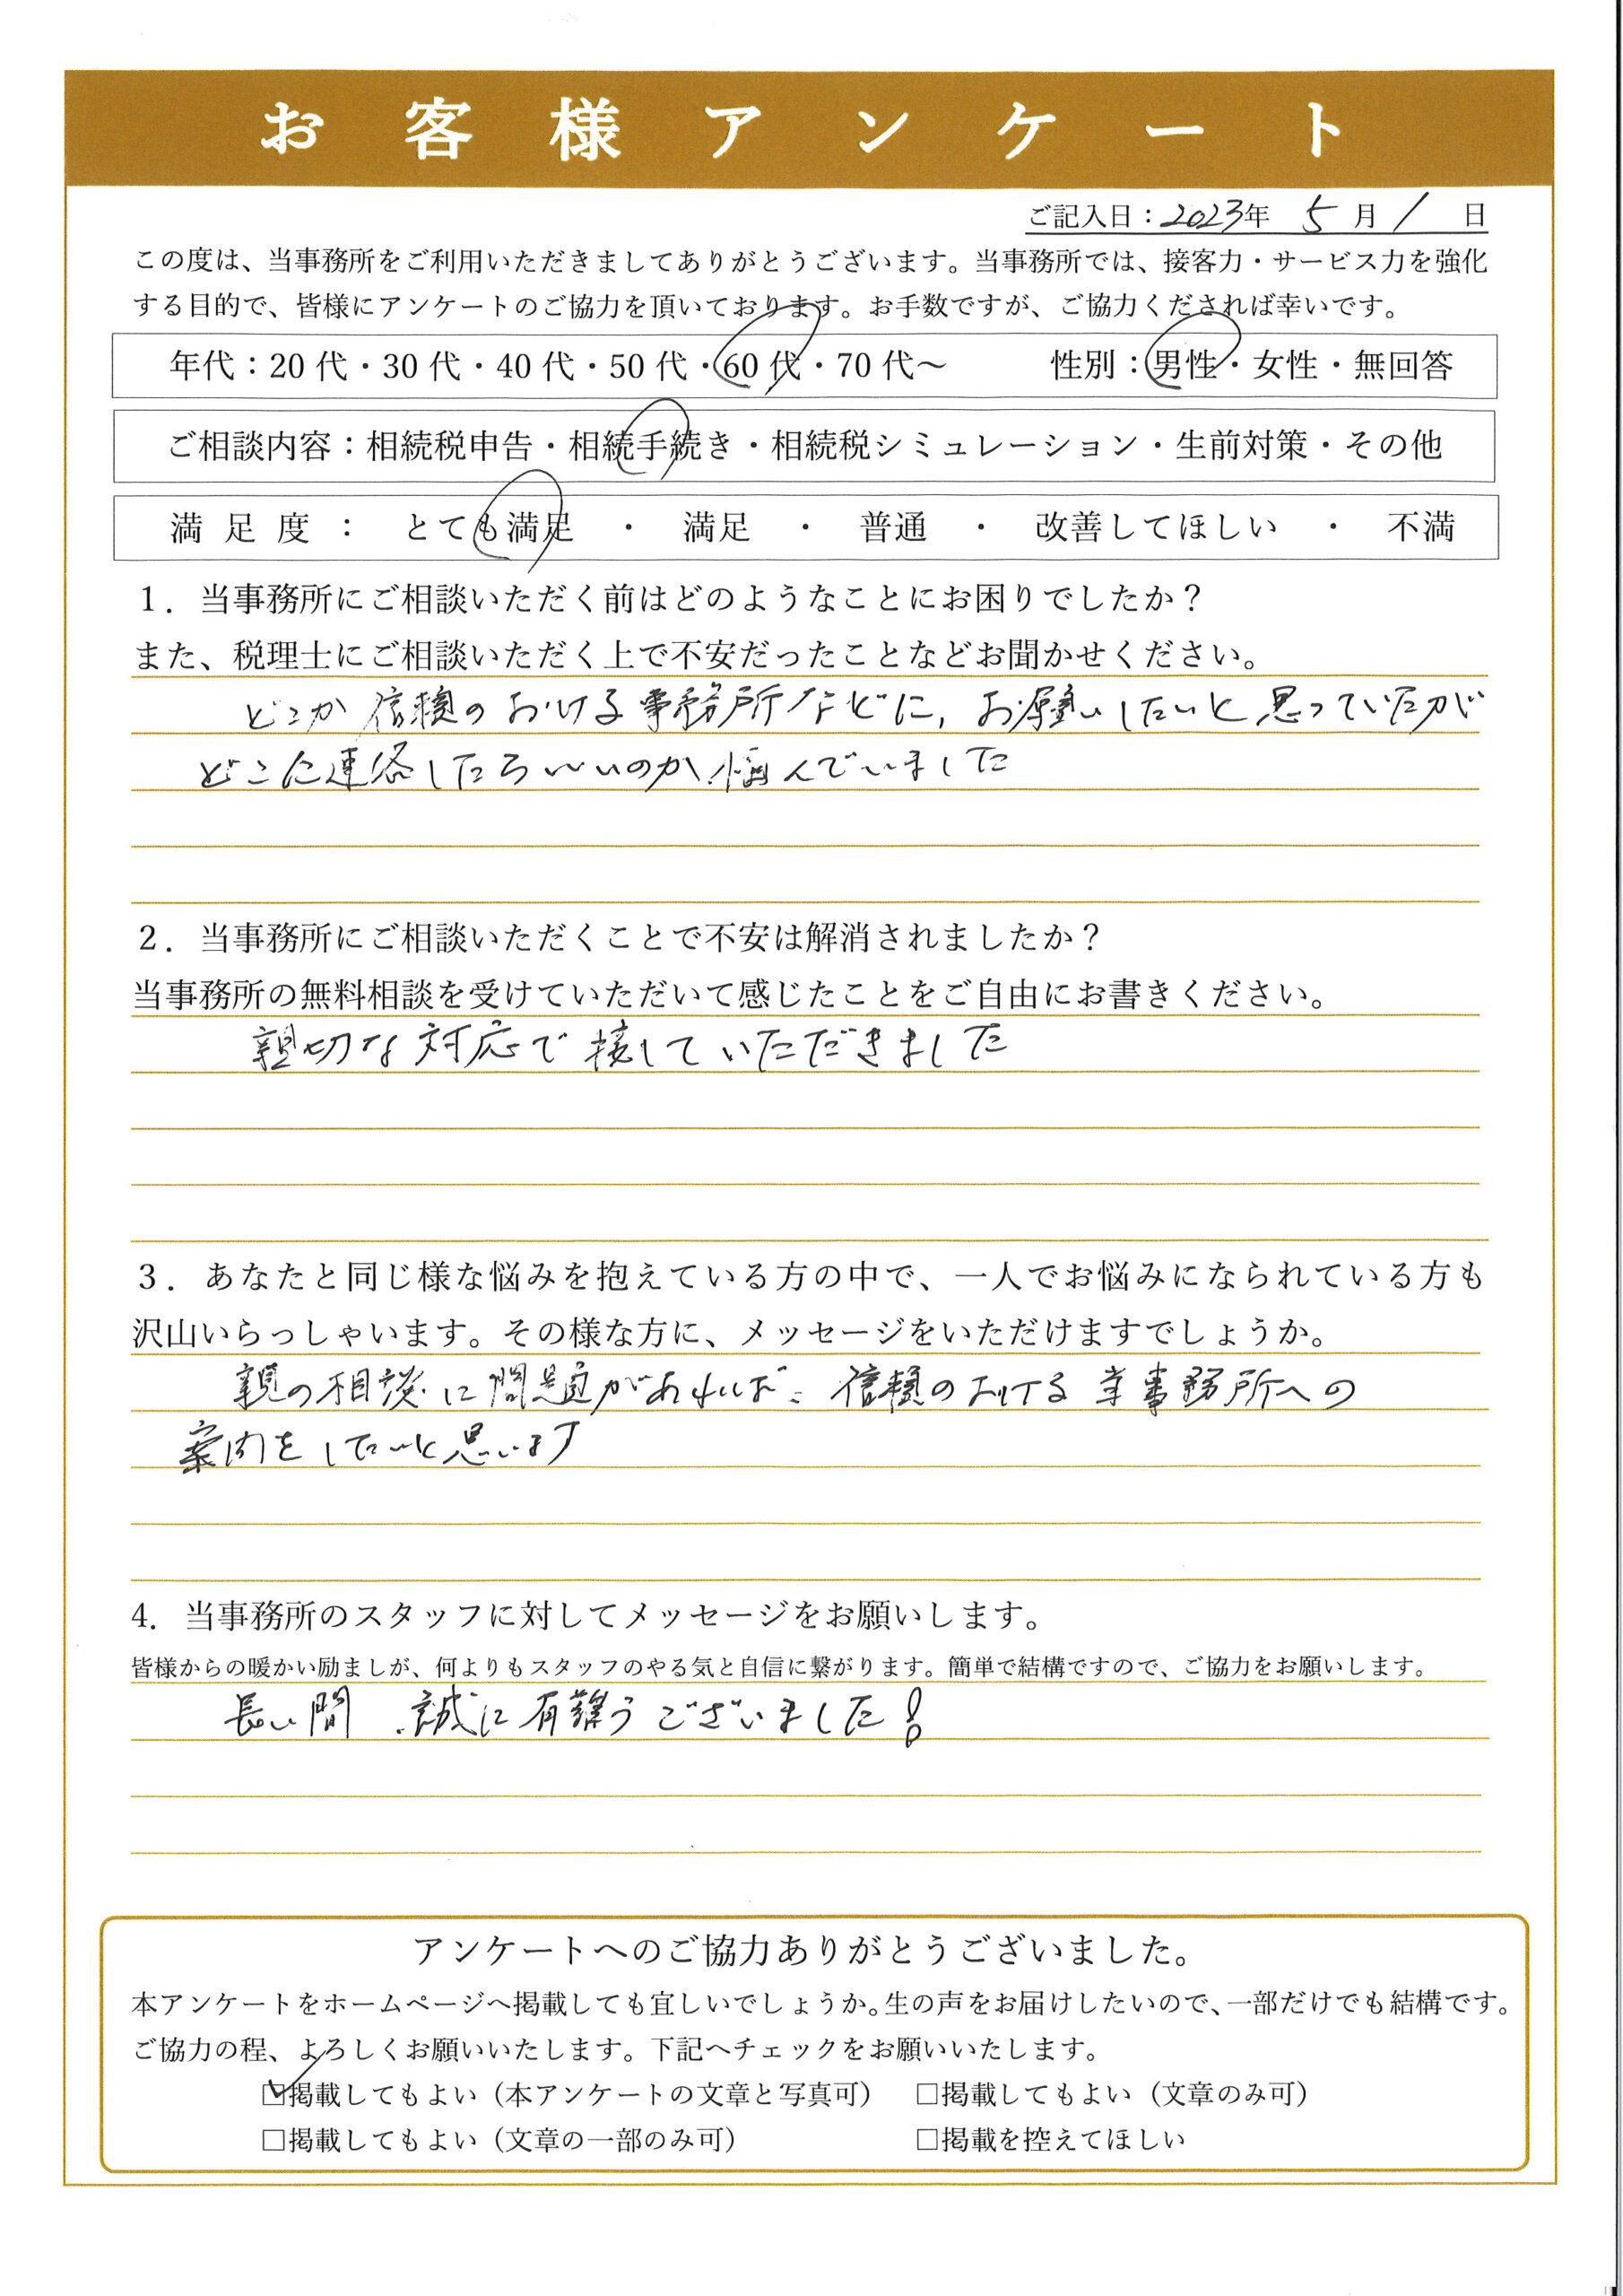 お客様アンケート
ご記入日：2023年 5月 1 日
この度は、当事務所をご利用いただきましてありがとうございます。当事務所では、接客力・サービス力を強化
する目的で、皆様にアンケートのご協力を頂いております。お手数ですが、ご協力くだされば幸いです。
年代：20代・30代・40代・50代・60代・70代〜　性別：男性・女性・無回答
ご相談内容：相続税申告・相続手続き・相続税シミュレーション・生前対策・その他
満足度：　とても満足　・　満足　・　普通　・　改善してほしい　・　不満
１．当事務所にご相談いただく前はどのようなことにお困りでしたか？
また、税理士にご相談いただく上で不安だったことなどお聞かせください。
どこか信頼のおける事務所などに、お願いしたいと思っていたが
どこに連絡したらいいのか悩んでいました
２．当事務所にご相談いただくことで不安は解消されましたか？
当事務所の無料相談を受けていただいて感じたことをご自由にお書きください。
親切な対応で接していただきました
３．あなたと同じ様な悩みを抱えている方の中で、一人でお悩みになられている方も
沢山いらっしゃいます。その様な方に、メッセージをいただけますでしょうか。
親の相談に問題があれば、信頼のおける事務所への
案内をしたいと思います
4．当事務所のスタッフに対してメッセージをお願いします。
皆様からの暖かい励ましが、何よりもスタッフのやる気と自信に繋がります。簡単で結構ですので、ご協力をお願いします。
長い間　誠に有難うございました！
アンケートへのご協力ありがとうございました。
本アンケートをホームページへ掲載しても宜しいでしょうか。生の声をお届けしたいので、一部だけでも結構です。
ご協力の程、よろしくお願いいたします。下記へチェックをお願いいたします。
☑掲載してもよい（本アンケートの文章と写真可）　□掲載してもよい（文章のみ可）
□掲載してもよい（文章の一部のみ可）　□掲載を控えてほしい